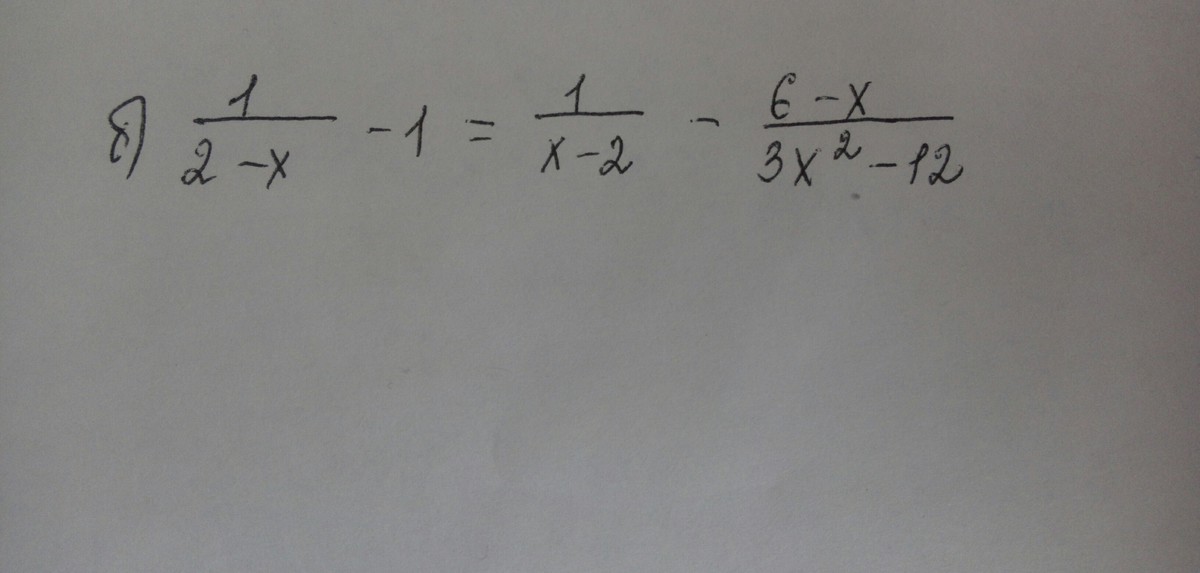 б) \frac{1}{2-x} - 1 = \frac{1}{x-2} - \frac{6-x}{3x^2-12}